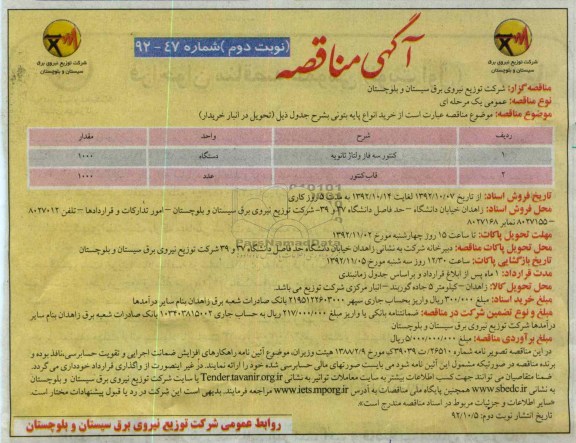 آگهی مناقصه
(نوبت دوم) شماره ۴۷ - ۹۲
شرکت توزیع نیروی برق
سیستان و بلوچستان
شرکت توزیع نیروی برق
سیستان و بلوچستان
مناقصه گزار: شرکت توزیع نیروی برق سیستان و بلوچستان
نوع مناقصه: عمومی یک مرحله ای
موضوع مناقصه: موضوع مناقصه عبارت است از خرید انواع پایه بتونی بشرح جدول ذیل (تحویل در انبار خریدار)
ردیف شرح واحد مقدار
۱ کنتور سه فاز ولتاژ ثانویه دستگاه ۱۰۰۰
۲ قاب کنتور عدد ۱۰۰۰
تاریخ فروش اسناد: از تاریخ ۱۳۹۲/۱۰/۰۷ لغایت ۱۳۹۲/۱۰/۱۴ به مدت ۵ روز کاری
محل فروش اسناد: زاهدان خیابان دانشگاه – حد فاصل دانشگاه ۳۷ و ۳۹- شرکت توزیع نیروی برق سیستان و بلوچستان – امور تدارکات و قراردادها – تلفن ۸۰۲۷۰۱۲
– ۸۰۲۷۱۵۵ نمابر ۸۰۲۷۱۶۸
مهلت تحویل پاکات: تا ساعت ۱۵ روز چهارشنبه مورخ ۱۳۹۲/۱۱/۰۲
محل تحویل پاکات مناقصه: دبیرخانه شرکت به نشانی زاهدان خیابان دانشگاه حد فاصل دانشگاه ۳۷ و ۳۹ شرکت توزیع نیروی برق سیستان و بلوچستان
تاریخ بازگشایی پاکات: ساعت ۱۲/۳۰ روز سه شنبه مورخ ۱۳۹۲/۱۱/۰۵
مدت قرارداد: ۱ ماه پس از ابلاغ قرارداد و براساس جدول زمانبندی
محل تحویل کالا: زاهدان – کیلومتر ۵ جاده گوربند – انبار مرکزی شرکت توزیع می باشد.
مبلغ خرید اسناد: مبلغ ۳۰۰/۰۰۰ ریال واریز بحساب جاری سپهر ۲۱۹۵۱۲۲۶۰۳۰۰۰ بانک صادرات شعبه برق زاهدان بنام سایر درآمدها
مبلغ و نوع تضمین شرکت در مناقصه: ضمانتنامه بانکی یا واریز مبلغ ۲۱۷/۰۰۰/۰۰۰ ریال به حساب جاری ۱۰۳۴۰۳۸۱۵۰۰۲ بانک صادرات شعبه برق زاهدان بنام سایر
درآمدها شرکت توزیع نیروی برق سیستان و بلوچستان
مبلغ برآوردی مناقصه: مبلغ ۵/۰۰۰/۰۰۰/۰۰۰ ریال
در این مناقصه تصویر نامه شماره ۲۶۵۱۰/ت ۳۹۰۳۹ک مورخ ۱۳۸۸/۲/۹ هیئت وزیران، موضوع آئین نامه راهکارهای افزایش ضمانت اجرایی و تقویت حسابرسی، نافذ بوده و
برنده مناقصه در صورتیکه مشمول این آئین نامه شود می بایست صورتهای مالی حسابرسی شده خود را ارائه نمایند. در غیر اینصورت از واگذاری قرارداد خودداری می گردد.
ضمنا متقاضیان می توانند جهت کسب اطلاعات بیشتر به سایت معاملات توانیر به نشانی Tender.tavanir.org.ir یا سایت شرکت توزیع نیروی برق سیستان و بلوچستان
به نشانی www.sbedc.ir همچنین پایگاه ملی مناقصات به آدرس www.iets.mporg.ir مراجعه فرمایند. بدیهی است این شرکت در رد یا قبول پیشنهادات مختار است.
«سایر اطلاعات و جزئیات مربوط در اسناد مناقصه مندرج است».
تاریخ انتشار نوبت دوم: ۹۲/۱۰/۵
روابط عمومی شرکت توزیع نیروی برق سیستان و بلوچستان